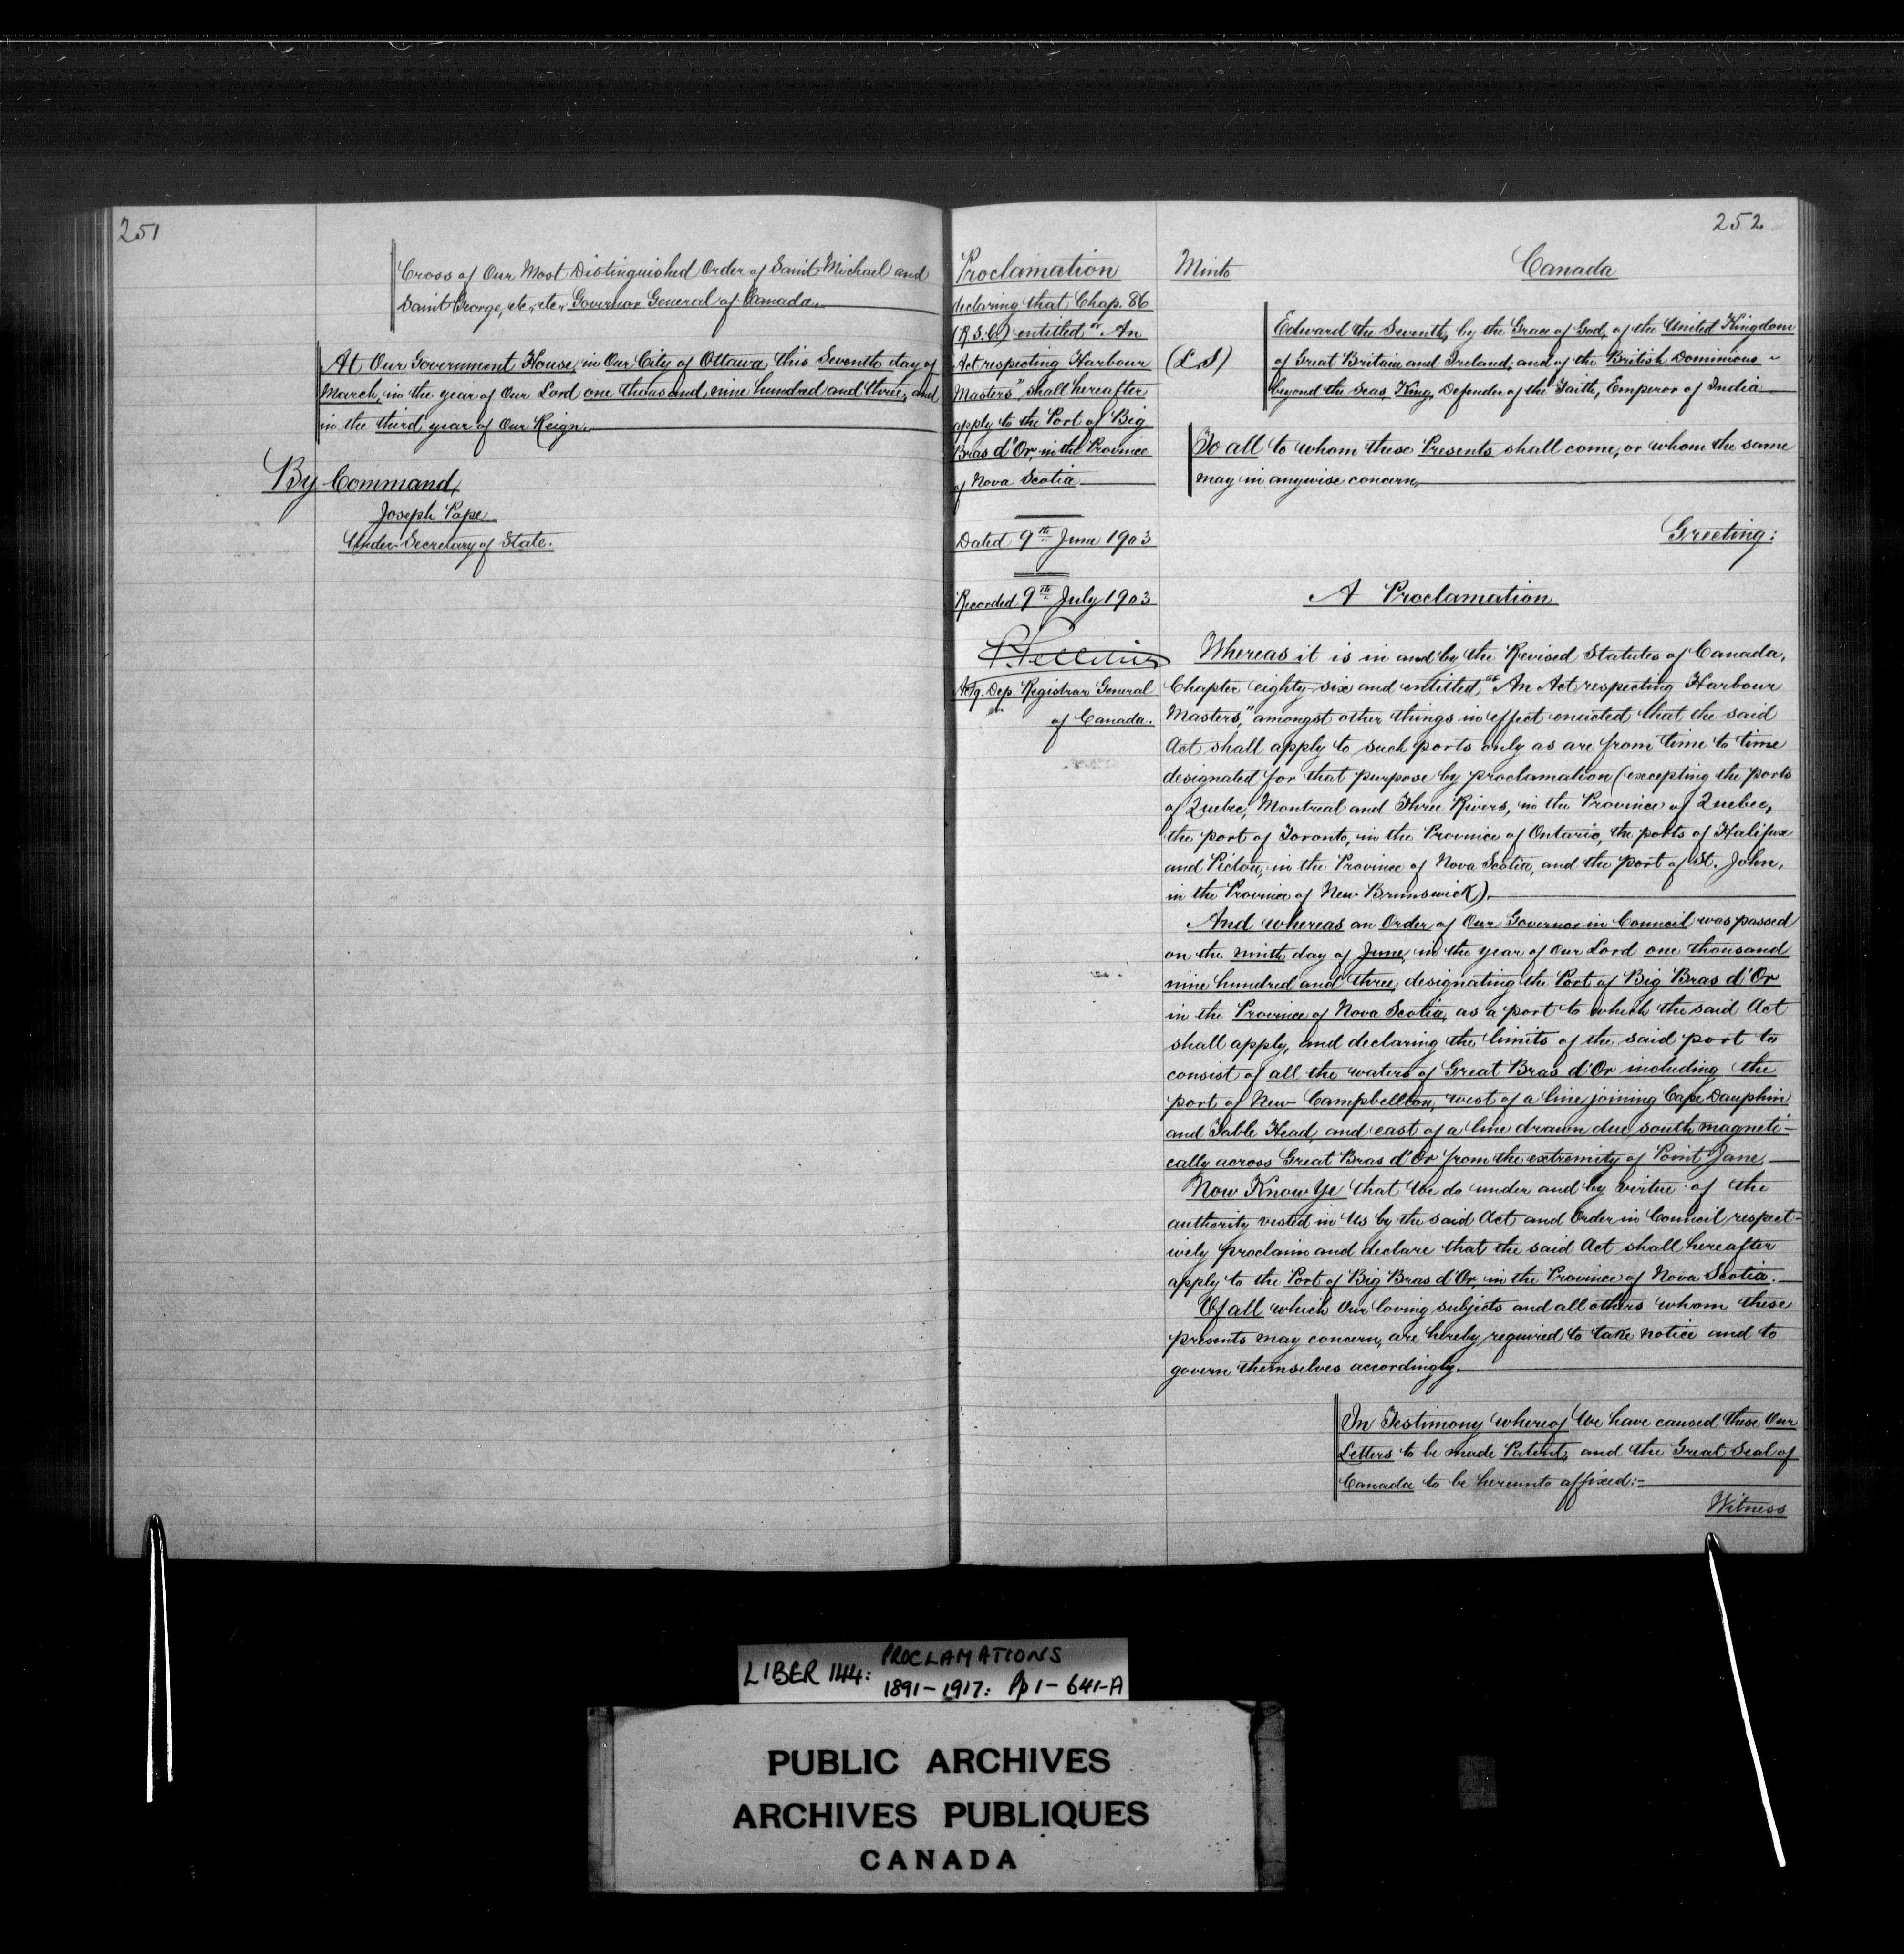 251
Cross of Our Most Distinguished Order of Saint Michael and
Saint George, etc., etc., Governor General of Canada.
At Our Government House, in Our City of Ottawa, this Seventh day of
March, in the year of Our Lord one thousand nine hundred and three, and
in the third year of Our Reign.
By Command,
Joseph Pope
Under-Secretary of State.
252
Proclamation
declaring that Chap. 86
(R.S.C.) entitled "An
Act respecting Harbour
Masters" shall hereafter
apply to the Port of Big
Bras d'Or, in the Province
of Nova Scotia
Dated 9th June 1903
Recorded 9th July 1903
P. Pelletier
Actg. Dep. Registrar General
of Canada.
Minto
Canada
(L.S)
Edward the Seventh, by the Grace of God, of the United Kingdom
of Great Britain and Ireland, and of the British Dominions
beyond the Seas, King, Defender of the Faith, Emperor of India
To all to whom these Presents shall come, or whom the same
may in anywise concern,
Greeting:
A Proclamation
Whereas it is in and by the Revised Statutes of Canada,
Chapter eighty-six and entitled "An Act respecting Harbour
Masters," amongst other things in effect enacted that the said
Act shall apply to such ports only as are from time to time
designated for that purpose by proclamation (excepting the ports
of Quebec, Montreal and Three Rivers, in the Province of Quebec,
the port of Toronto, in the Province of Ontario, the ports of Halifax
and Pictou, in the Province of Nova Scotia, and the port of St. John,
in the Province of New Brunswick).
And whereas an Order of Our Governor in Council was passed
on the ninth day of June, in the year of Our Lord one thousand
nine hundred and three, designating the Port of Big Bras d'Or
in the Province of Nova Scotia, as a port to which the said Act
shall apply, and declaring the limits of the said port to
consist of all the waters of Great Bras d'Or including the
port of New Campbellton, west of a line joining Cape Dauphin
and Table Head, and east of a line drawn due south magneti-
cally across Great Bras d'Or from the extremity of Point Jane
Now Know Ye that We do under and by virtue of the
authority vested in Us by the said Act and Order in Council respect-
ively proclaim and declare that the said Act shall hereafter
apply to the Port of Big Bras d'Or, in the Province of Nova Scotia.
Of all which Our loving subjects and all others whom these
presents may concern, are hereby required to take notice and to
govern themselves accordingly.
In Testimony whereof We have caused these Our
Letters to be made Patent, and the Great Seal of
Canada to be hereunto affixed:-
Witness
LIBER 144: PROCLAMATIONS
1891-1917: Pp 1-641-A
PUBLIC ARCHIVES
ARCHIVES PUBLIQUES
CANADA